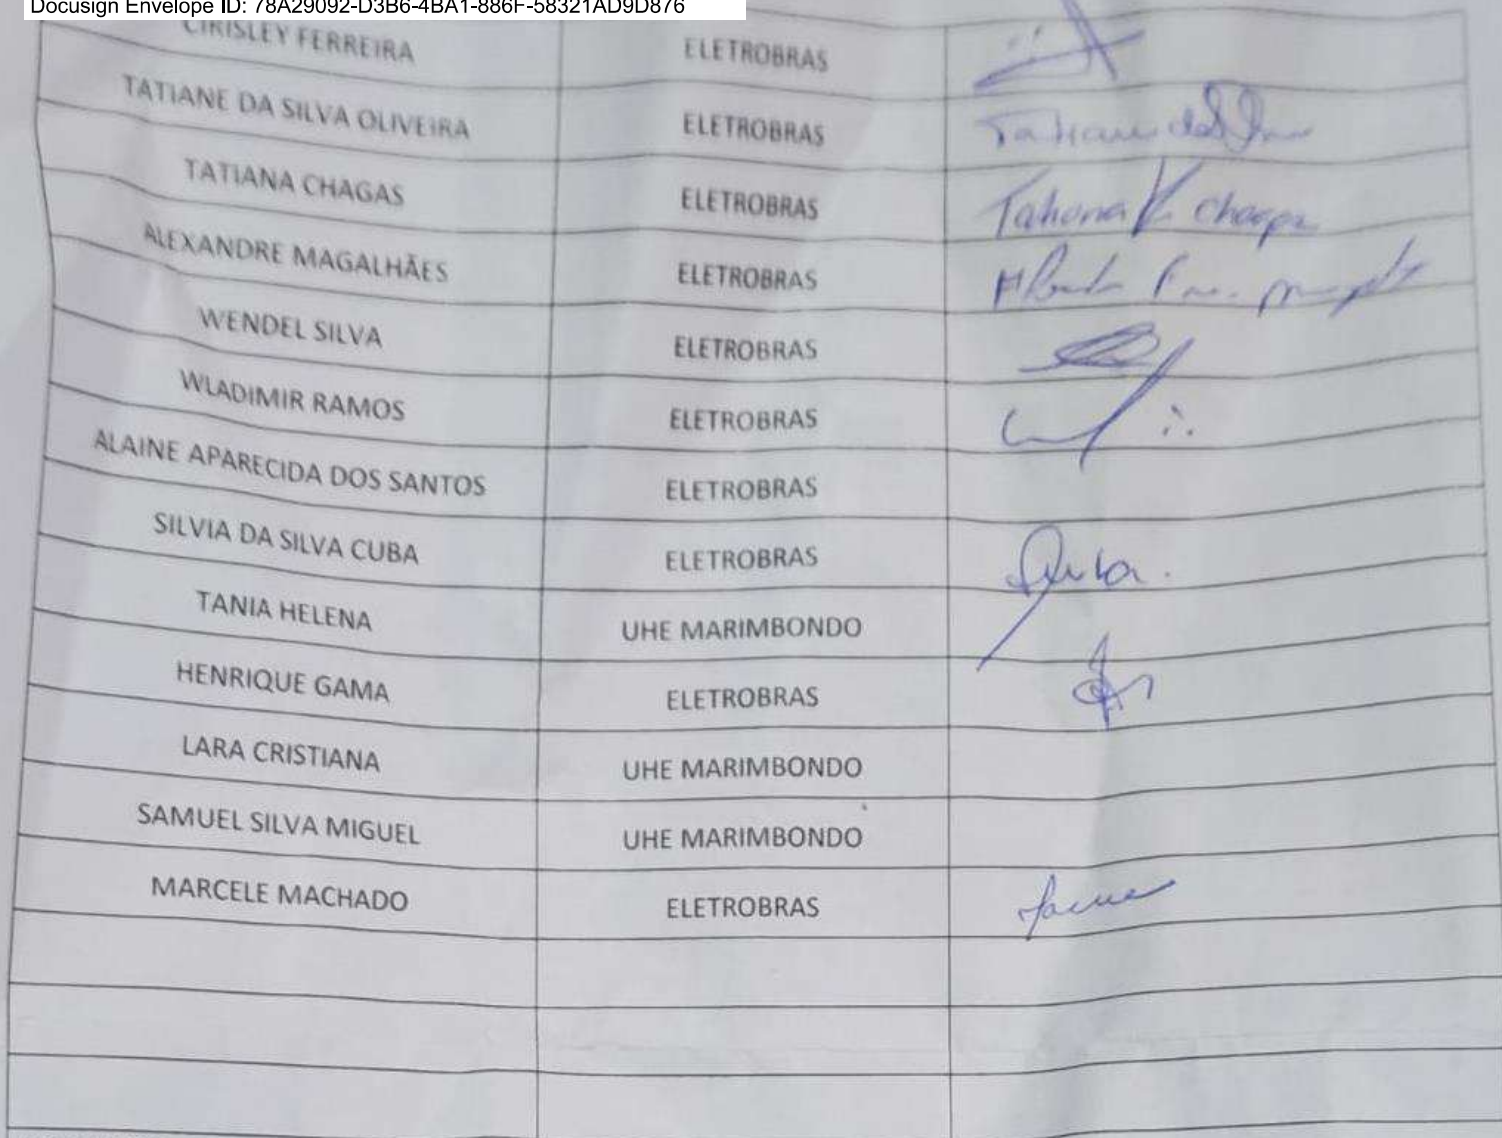 Docusign Envelope ID: 78A29092-D3B6-4BA1-886F-58321AD9D876
CIRISLEY FERREIRA ELETROBRAS
TATIANE DA SILVA OLIVEIRA ELETROBRAS
TATIANA CHAGAS ELETROBRAS
ALEXANDRE MAGALHÃES ELETROBRAS
WENDEL SILVA ELETROBRAS
WLADIMIR RAMOS ELETROBRAS
ALAINE APARECIDA DOS SANTOS ELETROBRAS
SILVIA DA SILVA CUBA ELETROBRAS
TANIA HELENA UHE MARIMBONDO
HENRIQUE GAMA ELETROBRAS
LARA CRISTIANA UHE MARIMBONDO
SAMUEL SILVA MIGUEL UHE MARIMBONDO
MARCELE MACHADO ELETROBRAS